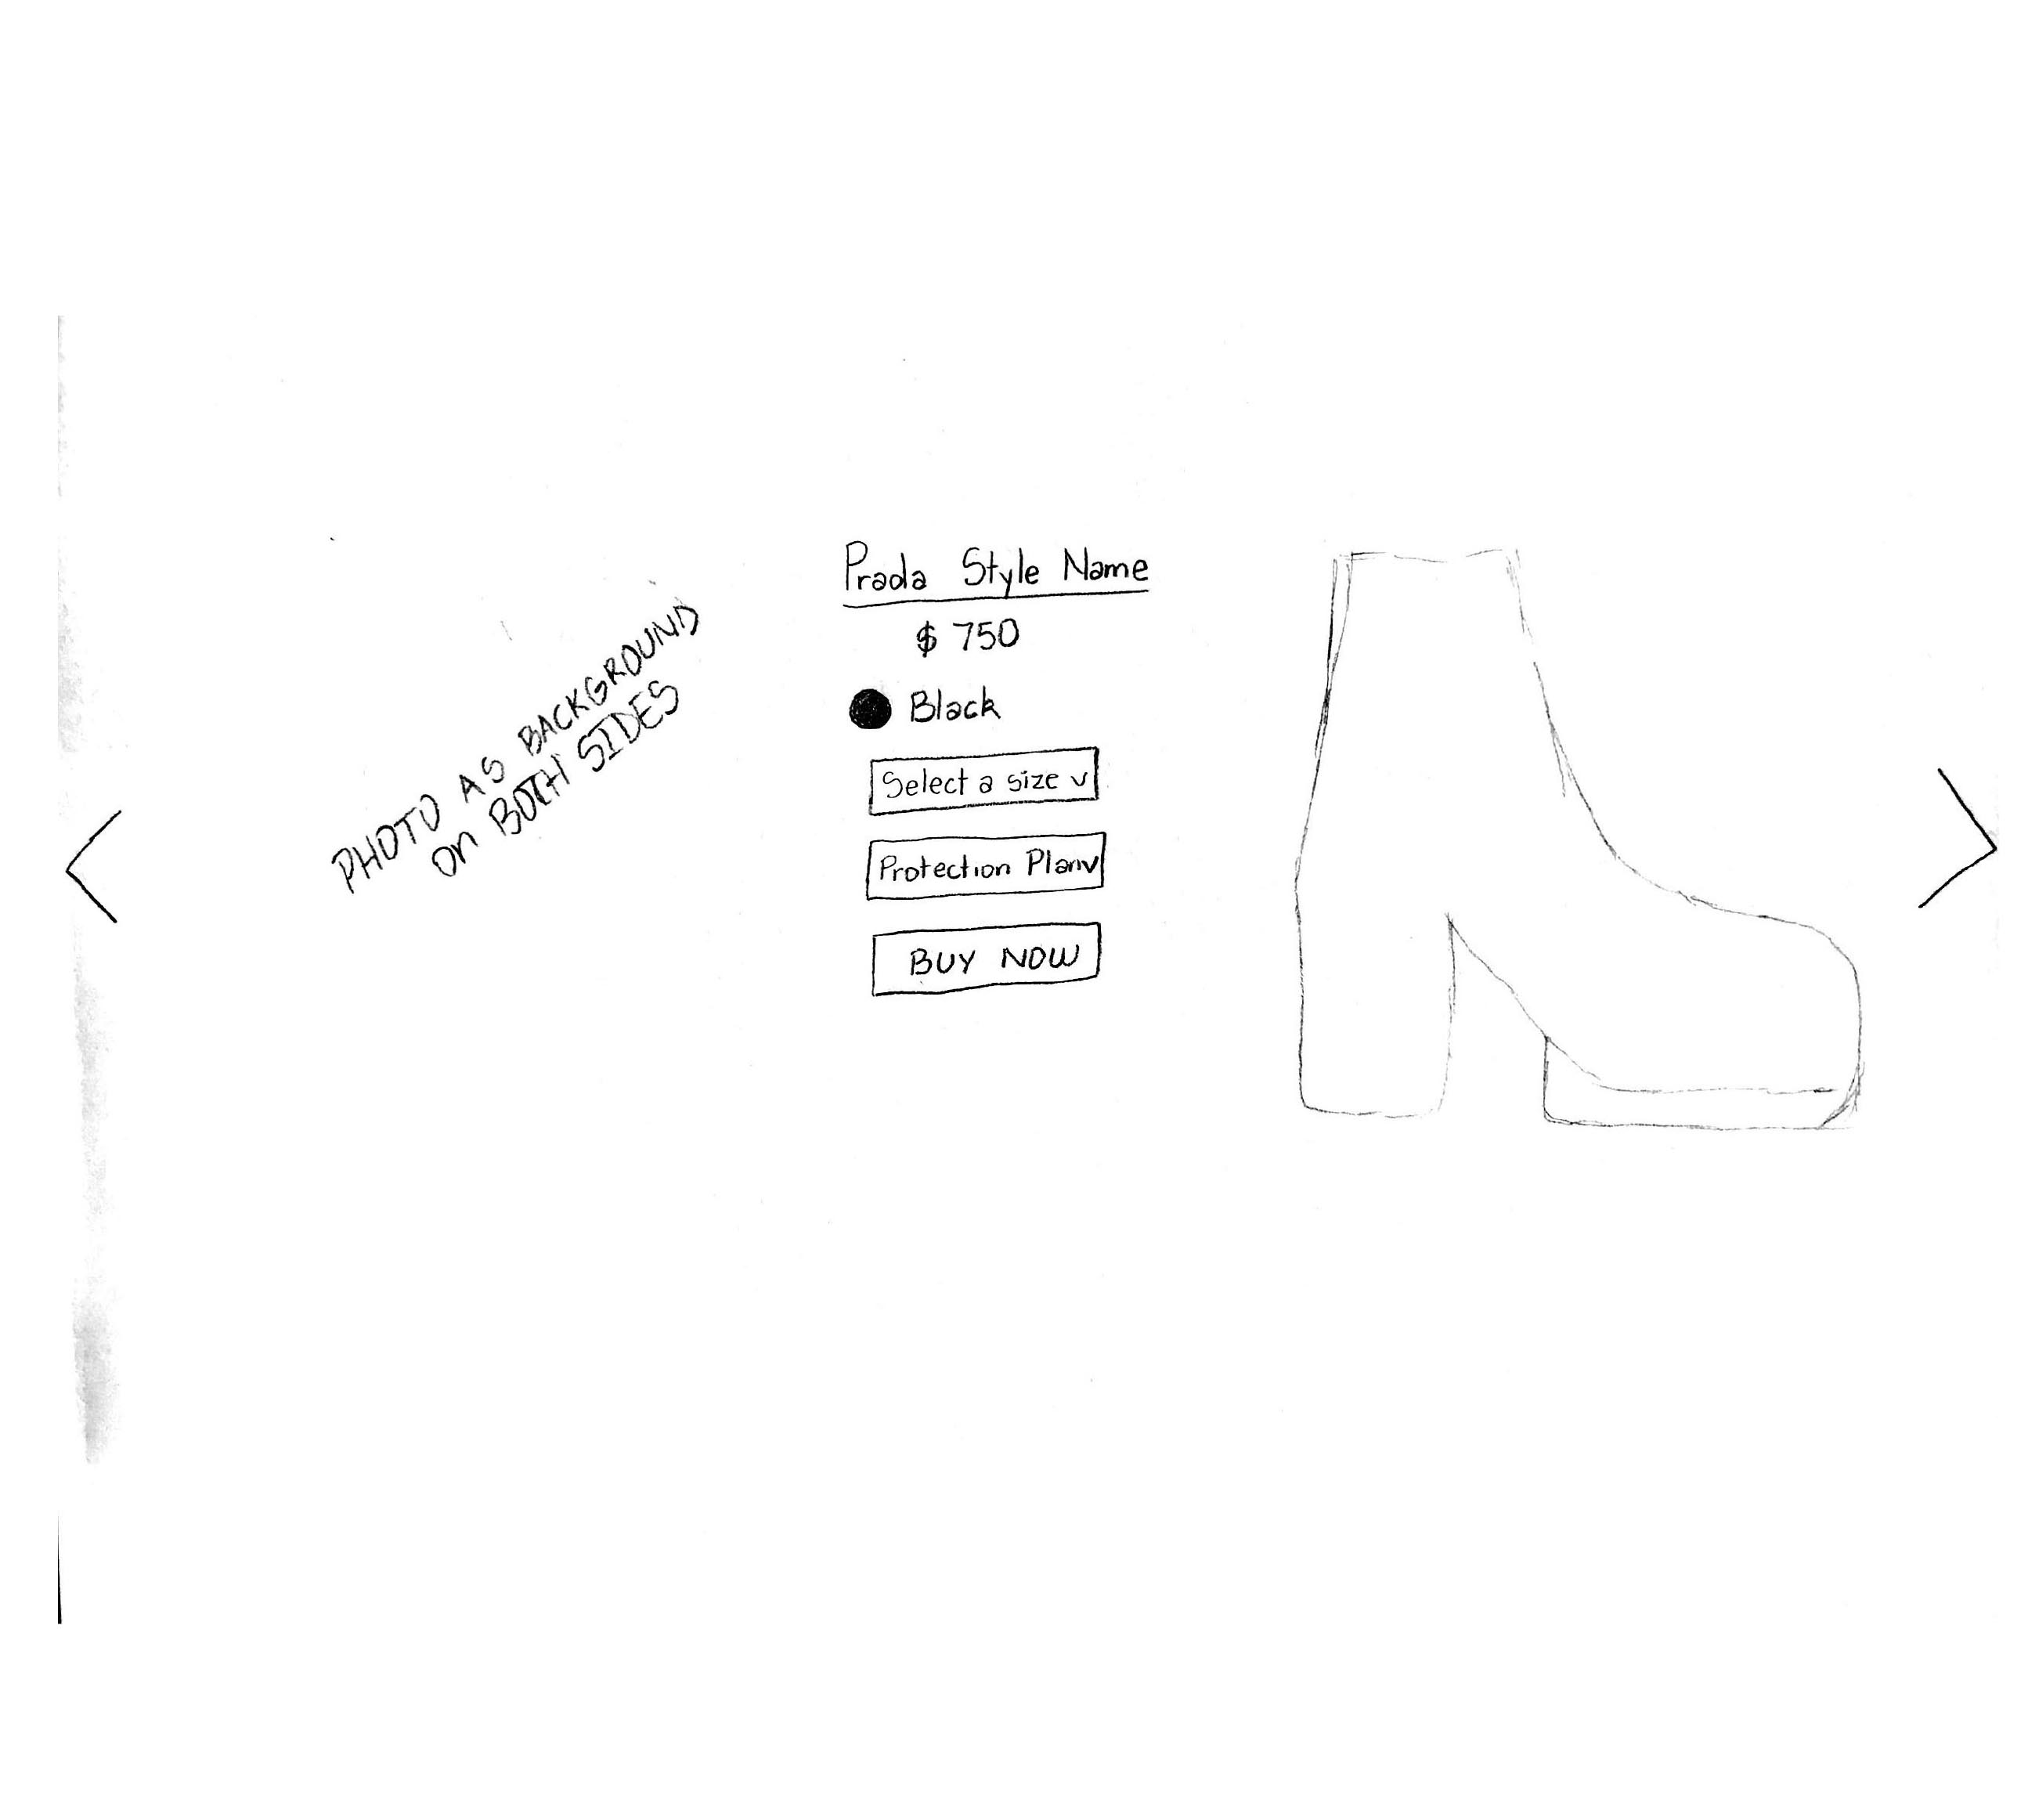 PHOTO AS BACKGROUND
On BOTH SIDES
Prada Style Name
$ 750
Black
Select a size v
Protection Plan v
BUY NOW